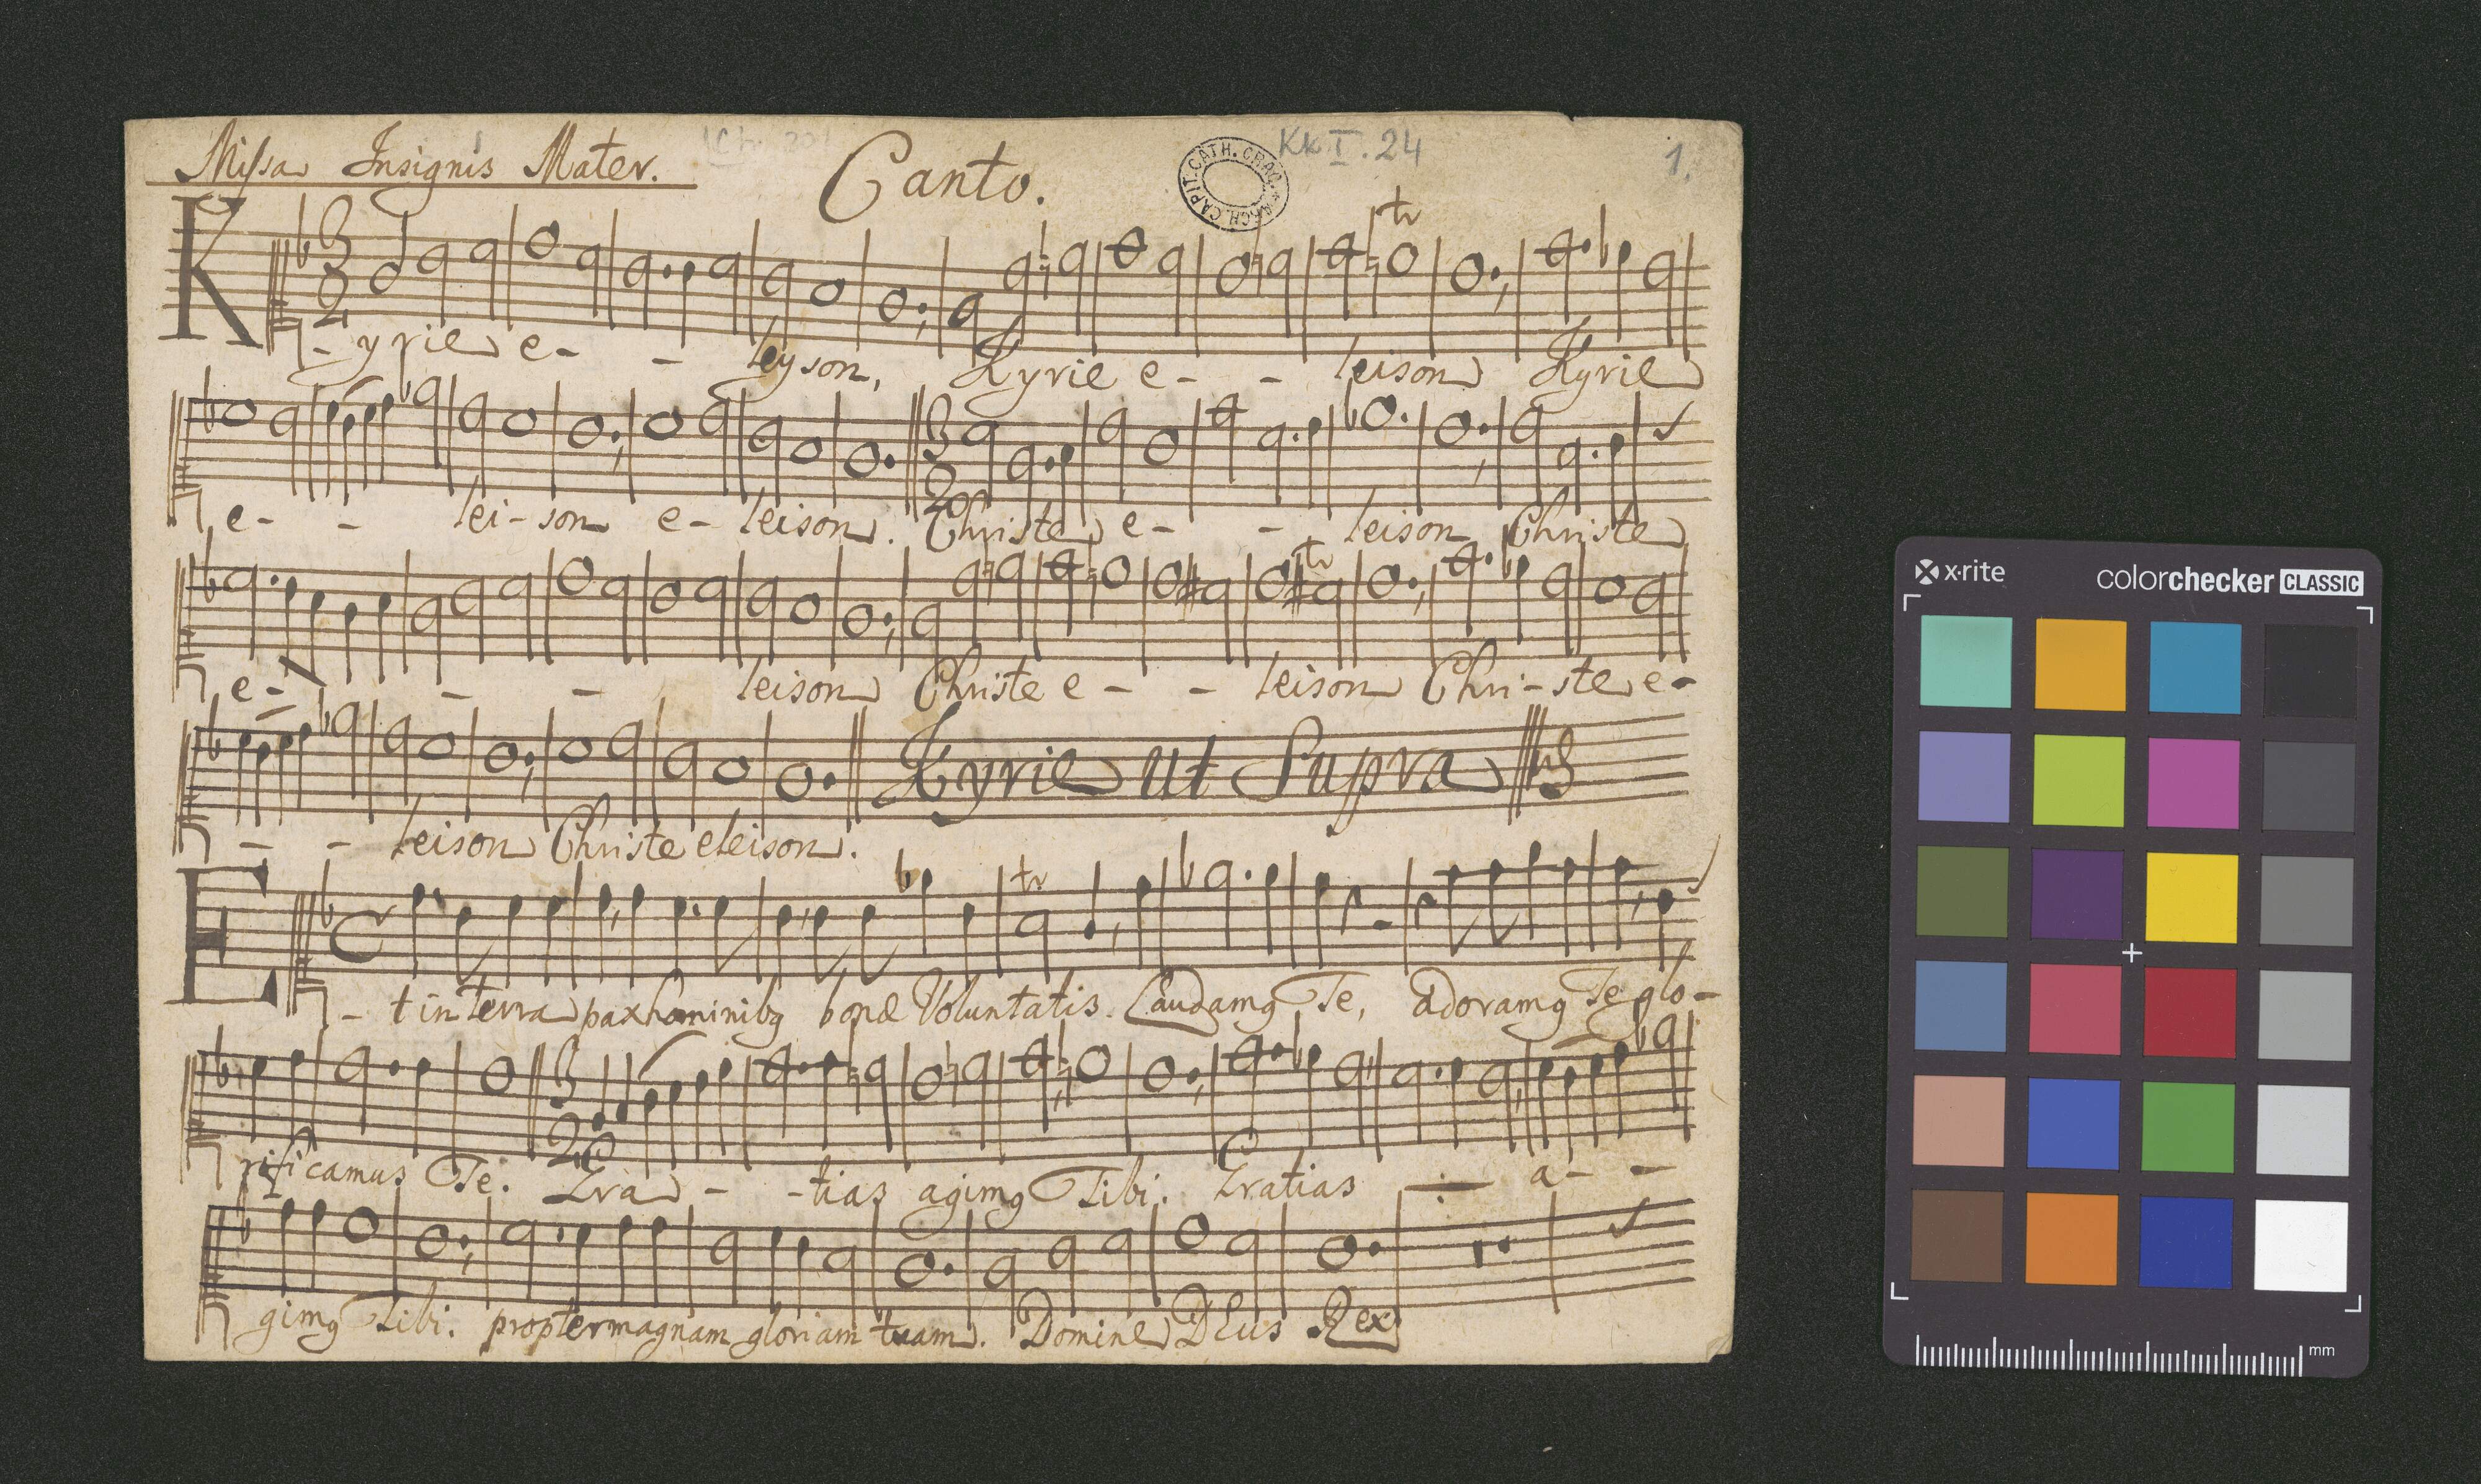 Missa Insignis Mater.
Canto.
ARCH. CAPIT. CATH. CRAC.
Kk I. 24
1.
K - yrie e - - leyson, Kyrie e - - leison Kyrie
e - - lei - son e - leison. Christe e - - leison Christe
e - - - leison Christe e - - leison Chri - ste e -
- - leison Christe eleison. Kyrie ut Supra
Et in terra pax hominibq bonæ Voluntatis. Laudamq Te, adoramq Te glo -
rificamus Te. Gra - - tias agimq Tibi. Gratias ÷ a - -
gimq Tibi. propter magnam gloriam tuam. Domine DEus Rex
x·rite
colorchecker CLASSIC
mm